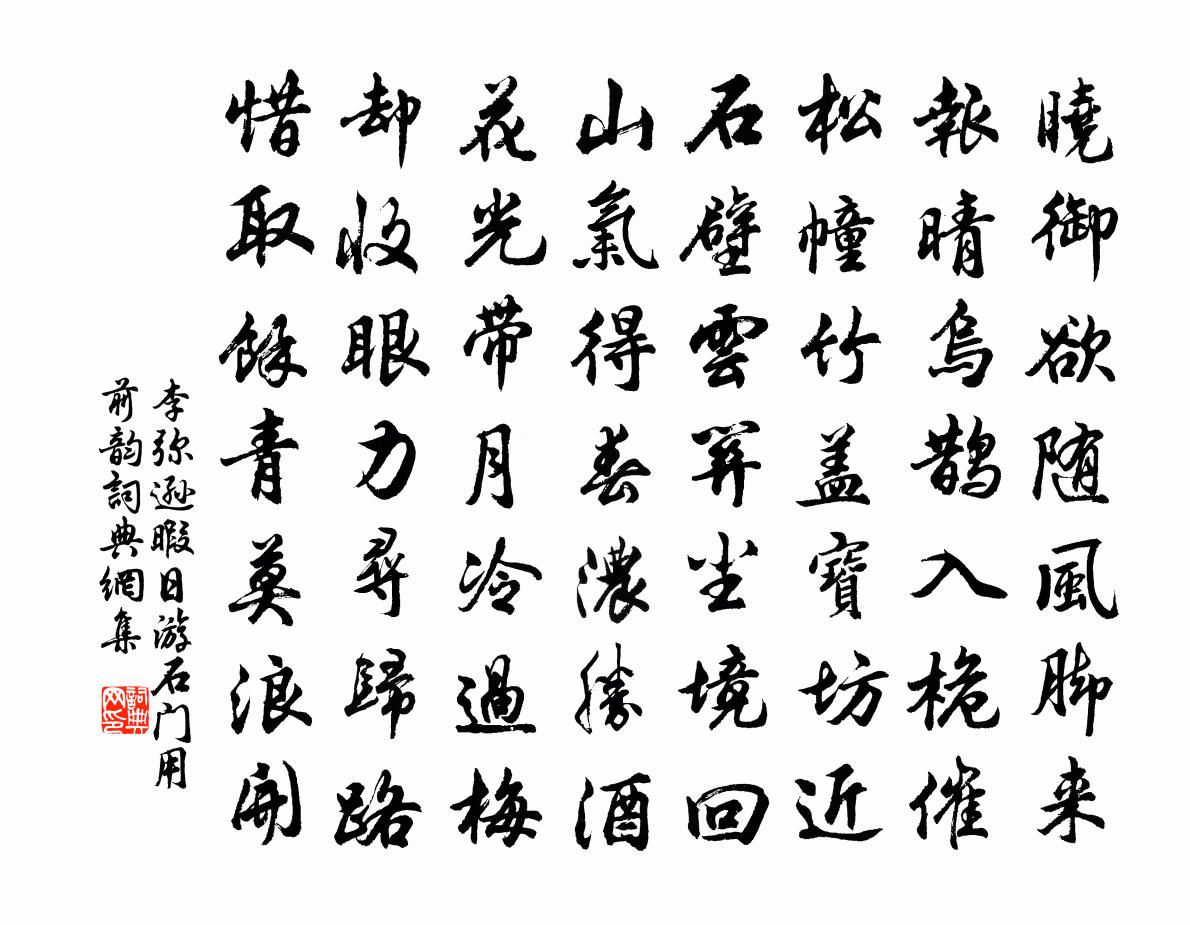 曉御欲随風脚来
報晴烏鵲入桅催
松幢竹盖寶坊近
石壁雲關尘境回
山氣得春濃勝酒
花光帶月冷過梅
却收眼力尋歸路
惜取餘青莫浪開
李弥遜暇日游石门用
前韵詞典網集
詞典网印